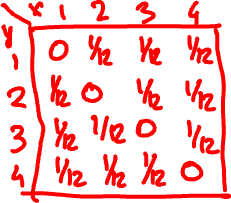 x 1 2 3 4
y
1 0 1/12 1/12 1/12
2 1/12 0 1/12 1/12
3 1/12 1/12 0 1/12
4 1/12 1/12 1/12 0